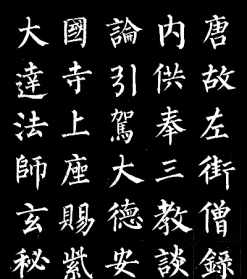 唐故左街僧錄
內供奉三教談
論引駕大德安
國寺上座賜紫
大達法師玄秘